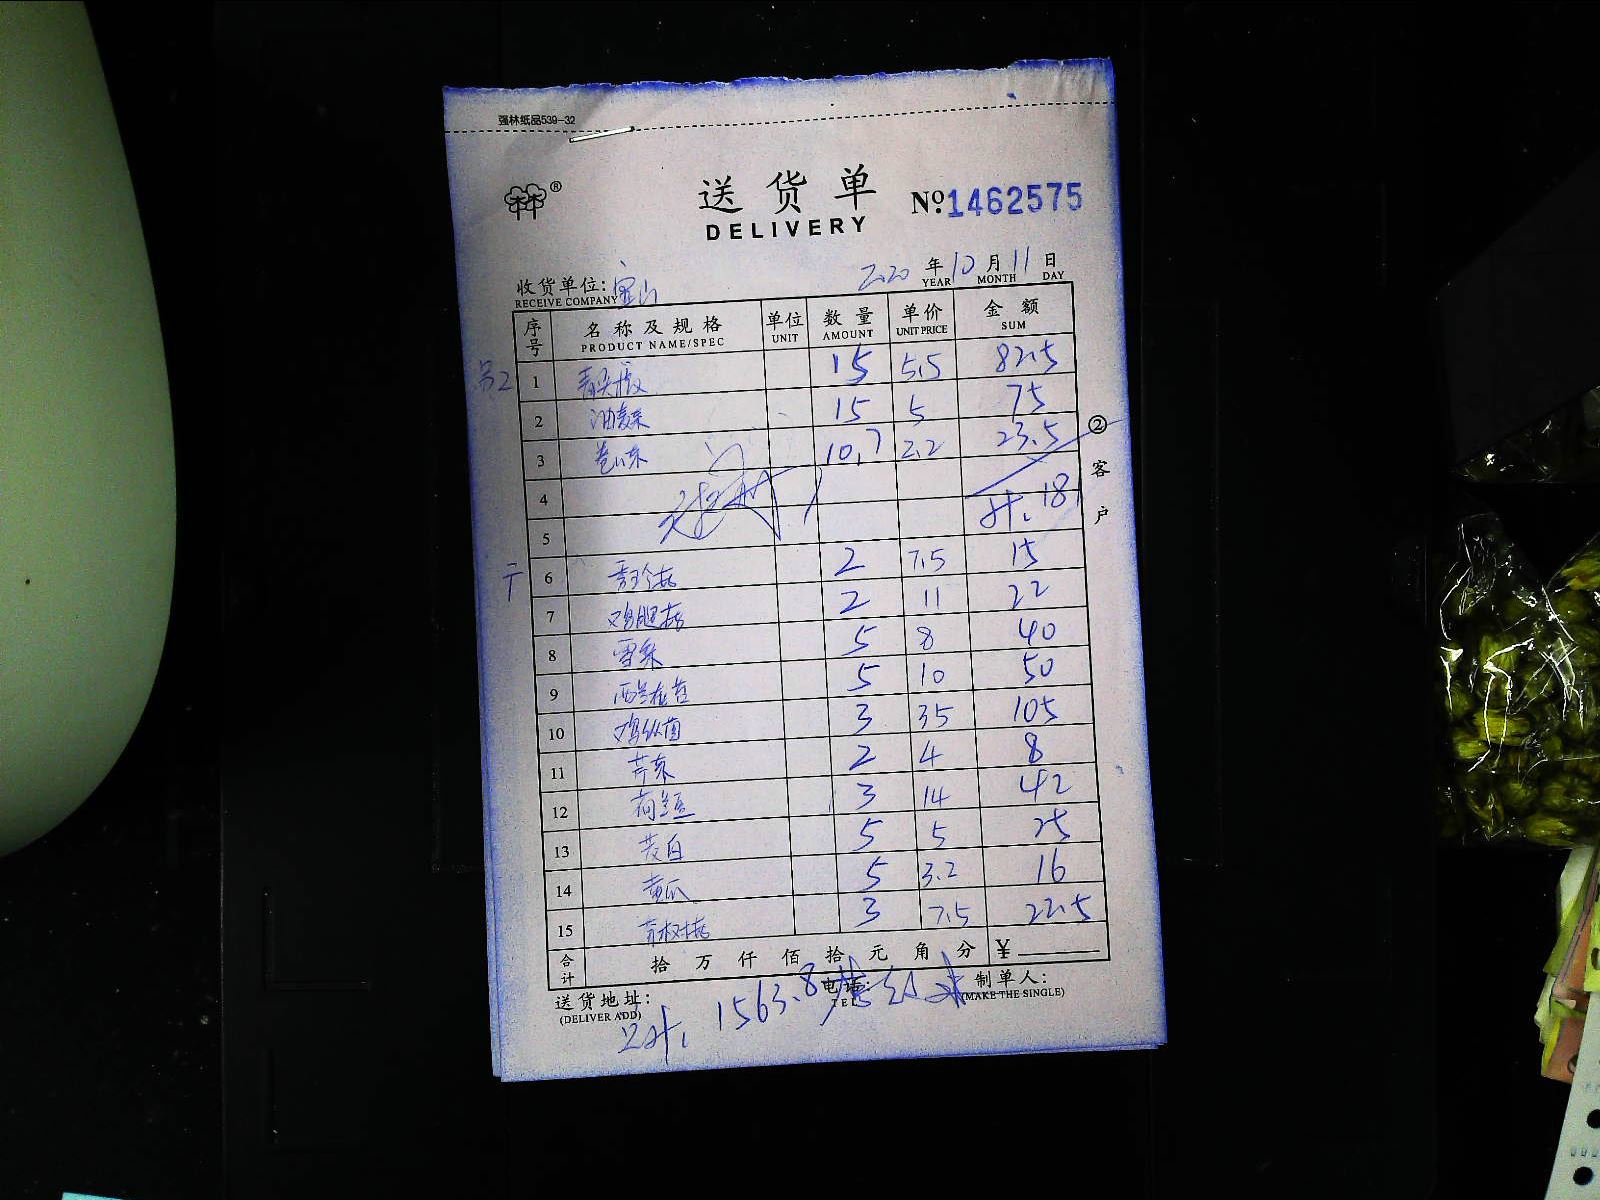 强林纸品539-32
送货单
DELIVERY
Nº.1462575
2020年10月11日
YEAR MONTH DAY
收货单位:宝山
RECEIVE COMPANY
序号 名称及规格 单位 数量 单价 金额
PRODUCT NAME/SPEC UNIT AMOUNT UNIT PRICE SUM
1 15 5.5 82.5
2 油麦菜 15 5 75
3 卷心菜 10.7 2.2 23.5
4
计: 181
5
6 杏鲍菇 2 7.5 15
7 鸡腿菇 2 11 22
8 雪菜 5 8 40
9 西兰花苔 5 10 50
10 鸡枞菌 3 35 105
11 芹菜 2 4 8
12 荷兰豆 3 14 42
13 茭白 5 5 25
14 黄瓜 5 3.2 16
15 3 7.5 22.5
②客户
合计 拾 万 仟 佰 拾 元 角 分 ¥
送货地址: 电话: 制单人:
(DELIVER ADD) TEL (MAKE THE SINGLE)
总计: 1563.8